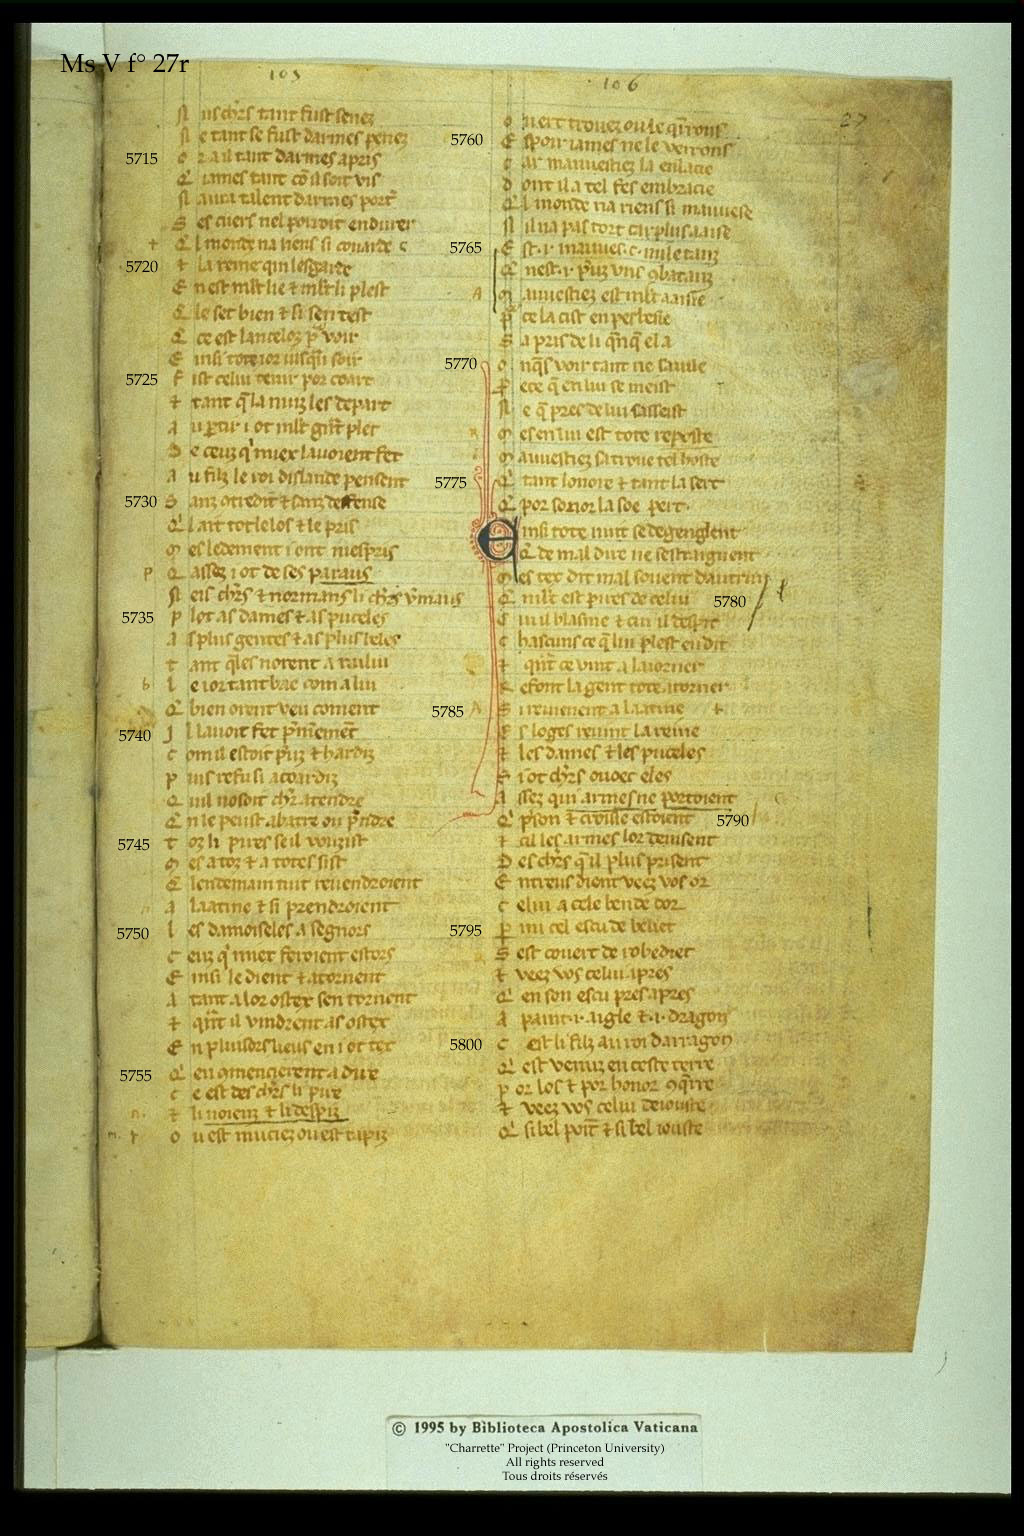 Ms V f° 27r
105
106
27
N us chrs tant fust senez
N e tant se fust darmes penez
5715
O r a il tant darmes apris
Q iames tant cō il soit vis
N aura talent darmes port
S es cuers nel porroit endurer
Q l monde na riens si couarde
5720
⁊ la reine qui lesgarde
E n est mlt lie ⁊ mlt li plest
Q le set bien ⁊ si sen test
Q ce est lanceloz voir
E insi tote ior iusqua soir
5725
F ist celui tenir por coart
⁊ tant q la nuiz les depart
A u ptir i ot mlt grnt plet
D e ceus q miex lauoient fet
A u filz le roi dislande pensent
5730
S anz otredit ⁊ sanz deffense
Q l ait tot le los ⁊ le pris
M es ledement i ont mespris
Q assez i ot de ses paraus
N eis chrs ⁊ normans li chrs vmaus
5735
P lot as dames ⁊ as puceles
A s plus gentes ⁊ as plus beles
T ant qles norent a nului
L e ior tant bae com a lui
Q bien orent veu coment
5740
J l lauoit fet pmement
C om il estoit pruz ⁊ hardiz
P uis refu si acoardiz
Q uil nosoit chr atendre
Q n le peust abatre ou prendre
5745
T oz li pires seil vousist
M es a toz ⁊ a totes sist
Q lendemain tuit reuendroient
A laatine ⁊ si prendroient
5750
L es damoiseles a segnors
C eus q miex feroient estors
E insi le dient ⁊ atornent
A tant a lor ostex sen tornent
⁊ qnt il vindrent as ostex
E n plusors lieus en i ot tex
5755
Q en 9mencierent a dire
C e est des chrs li pire
⁊ li noienz ⁊ li despiz
O u est muciez ou est tapiz
O u ert trouez ou le qrrons
5760
E spoir iames ne le verrons
C ar mauuestiez la enlacie
D ont il a tel fes embracie
Q l monde na riens si mauuese
N il na pas tort car plus aaise
5765
E st .i. mauues .c. mile tanz
Q nest .i. pruz vns 9batanz
M auuestiez est mlt aaisie
P ce la cist en pes besie
S a pris de li qnq el a
5770
O nqs voir tant ne sauale
P ece q en lui se meist
N e q pres de lui sasseist
M es en lui est tote reposte
M auuestiez sa troue tel hoste
5775
Q tant lonore ⁊ tant la sert
Q por sonor la soe pert
E insi tote nuit se degenglent
Q de mal dire ne sestranguent
M es tex dit mal souent dautrui
Q mlt est pires de celui
5780
C ui il blasme ⁊ cui il despit
C hascuns ce q lui plest en dit
⁊ qnt ce vint a laiorner
R efont la gent tote atorner
5785
S i reuienent a laatine
E s loges reuint la reine
⁊ les dames ⁊ les puceles
S i ot chrs ouoec eles
A ssez qui armes ne portoient
Q prison ⁊ croisie estoient
5790
⁊ cil les armes lor deuisent
D es chrs q il plus prisent
E ntreus dient veez vos or
C elui a cele bende dor
5795
P mi cel escu de bellet
S est couert de robedret
⁊ veez vos celui apres
Q en son escu pres apres
A paint .i. aigle ⁊ .i. dragon
5800
C est li filz au roi darragon
Q est venuz en ceste terre
P or los ⁊ por honor 9qrre
⁊ veez vos celui deiouste
Q si bel point ⁊ si bel iouste
© 1995 by Biblioteca Apostolica Vaticana
"Charrette" Project (Princeton University)
All rights reserved
Tous droits réservés